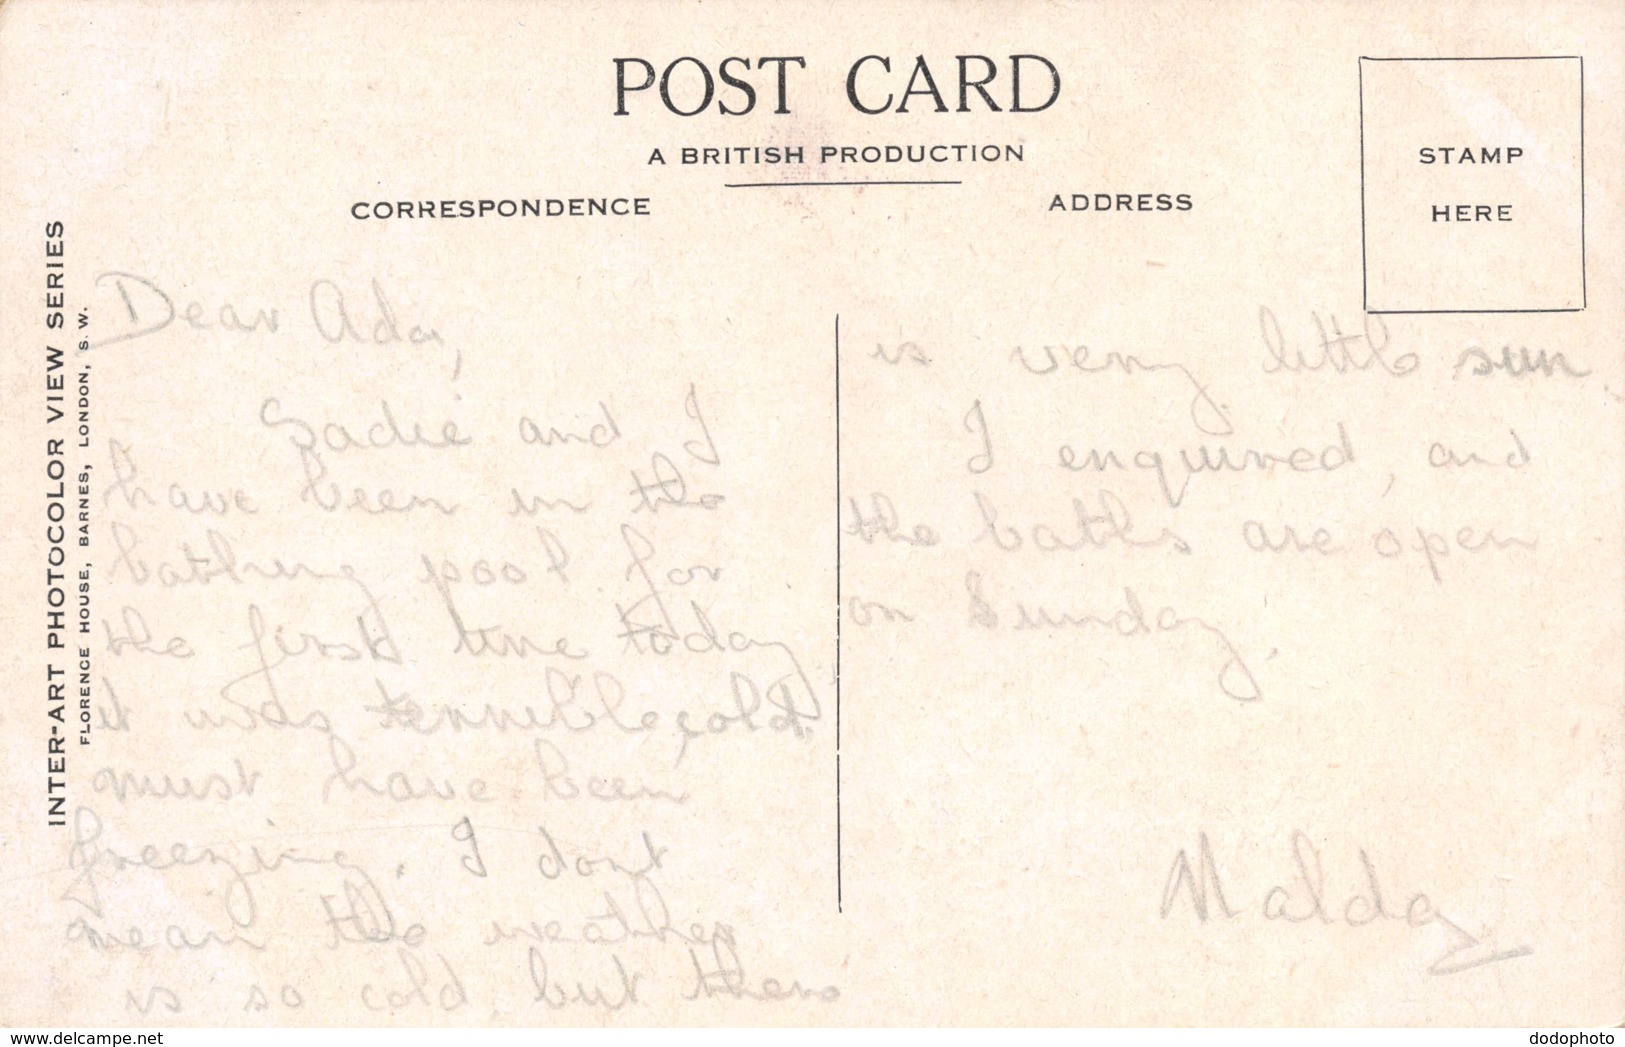 POST CARD
A BRITISH PRODUCTION
CORRESPONDENCE
ADDRESS
STAMP
HERE
INTER-ART PHOTOCOLOR VIEW SERIES
FLORENCE HOUSE, BARNES, LONDON, S.W.
Dear Ada,
Sadie and I
have been in the
bathing pool for
the first time today
it was terrible cold.
must have been
freezing. I dont
mean the weather
is so cold, but there
is very little sun.
I enquired, and
the baths are open
on Sunday.
Malda
www.delcampe.net
dodophoto